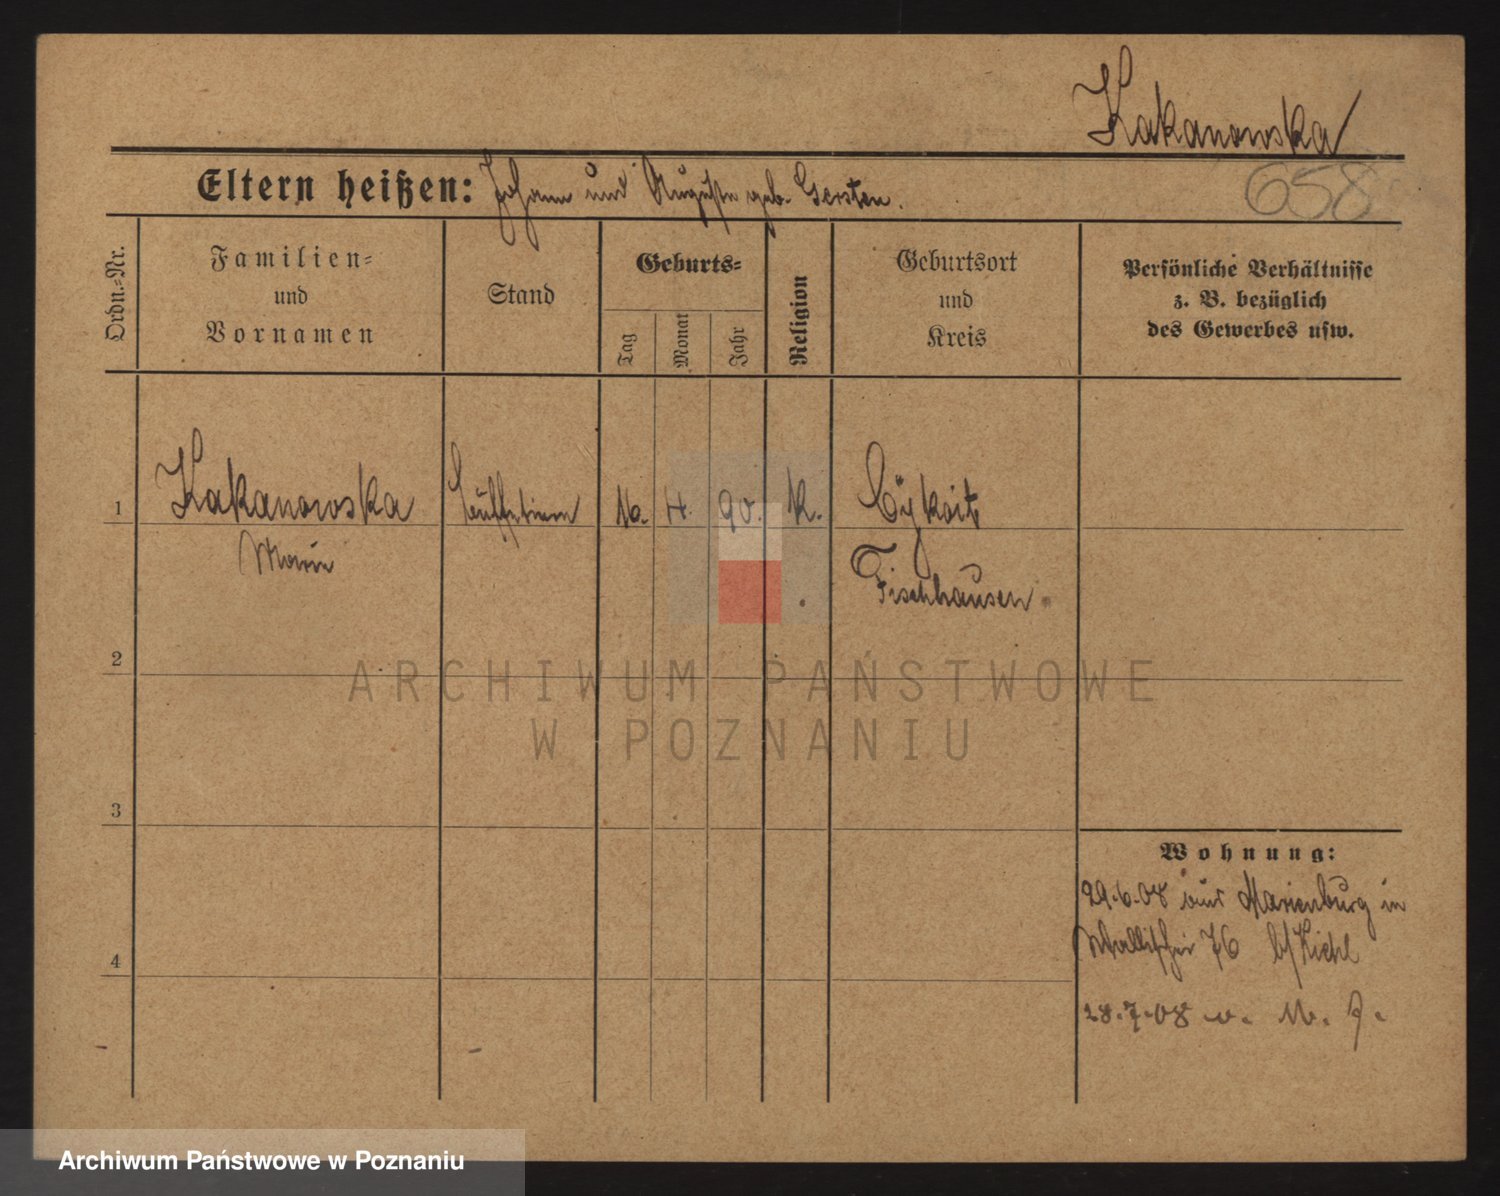 Kakanowska
658
Eltern heißen: Johann und Auguste geb. Gersten.
Ordn.-Nr.
Familien-
und
Vornamen
Stand
Geburts-
Tag
Monat
Jahr
Religion
Geburtsort
und
Kreis
Persönliche Verhältnisse
z. B. bezüglich
des Gewerbes usw.
1
Kakanowska
Marie
16. 4. 90. k.
Fischhausen
2
3
4
Wohnung:
29.6.08 aus Marienburg in
Wallischei 76 b/Kiehl
28.7.08 v.
ARCHIWUM PAŃSTWOWE
W POZNANIU
Archiwum Państwowe w Poznaniu